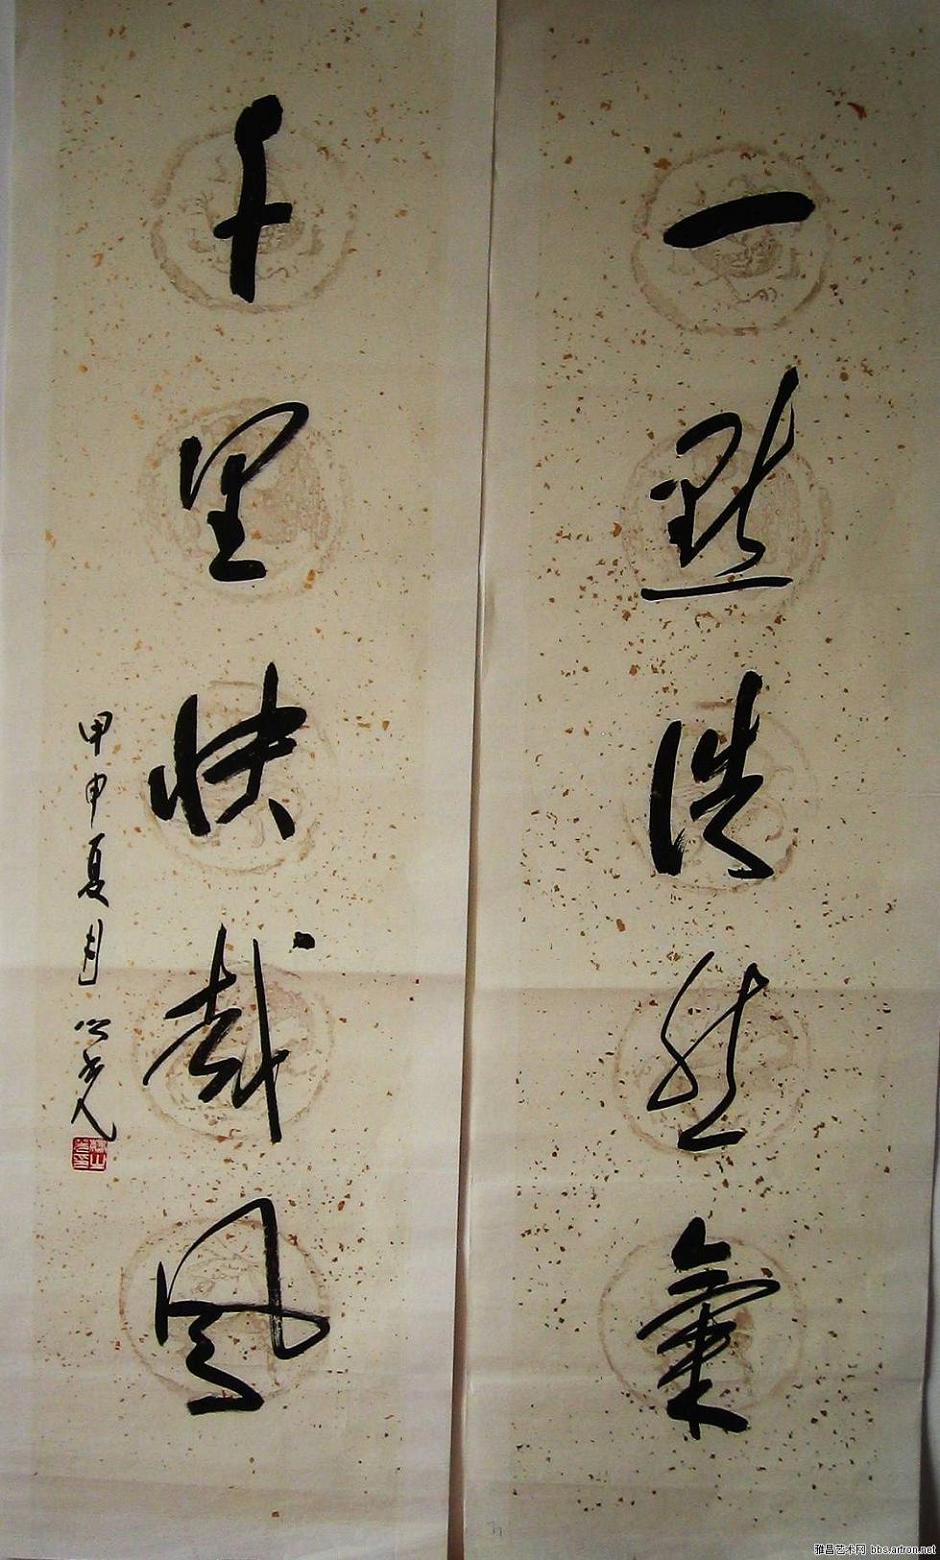 一點浩然氣
千里快哉風
甲申夏月
雅昌艺术网 bbs.artron.net